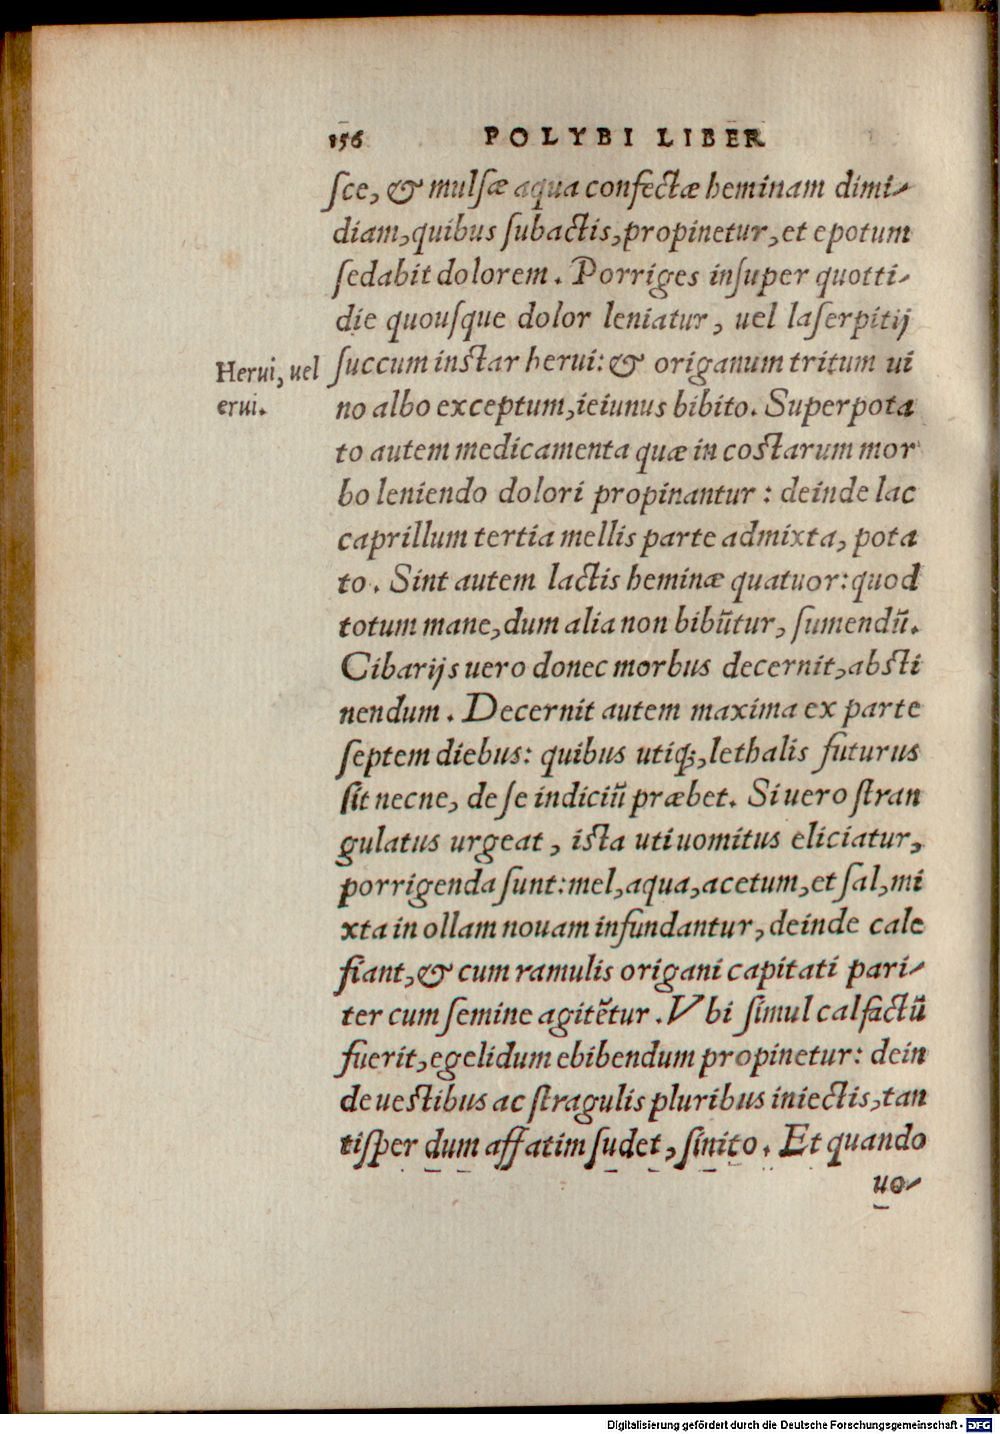 156 POLYBI LIBER
ſce, & mulſæ aqua confectæ heminam dimi-
diam, quibus ſubactis, propinetur, et epotum
ſedabit dolorem. Porriges inſuper quotti-
die quouſque dolor leniatur, uel laſerpitij
Herui, uel
erui.
ſuccum inſtar herui: & origanum tritum ui
no albo exceptum, ieiunus bibito. Superpota
to autem medicamenta quæ in coſtarum mor
bo leniendo dolori propinantur: deinde lac
caprillum tertia mellis parte admixta, pota
to. Sint autem lactis heminæ quatuor: quod
totum mane, dum alia non bibũtur, ſumendũ.
Cibarijs uero donec morbus decernit, abſti
nendum. Decernit autem maxima ex parte
ſeptem diebus: quibus utiq;, lethalis futurus
ſit necne, de ſe indiciũ præbet. Si uero ſtran
gulatus urgeat, iſta uti uomitus eliciatur,
porrigenda ſunt: mel, aqua, acetum, et ſal, mi
xta in ollam nouam infundantur, deinde cale
fiant, & cum ramulis origani capitati pari-
ter cum ſemine agitẽtur. Vbi ſimul calfactũ
fuerit, egelidum ebibendum propinetur: dein
de ueſtibus ac ſtragulis pluribus iniectis, tan
tiſper dum affatim ſudet, ſinito. Et quando
uo-
Digitalisierung gefördert durch die Deutsche Forschungsgemeinschaft - DFG